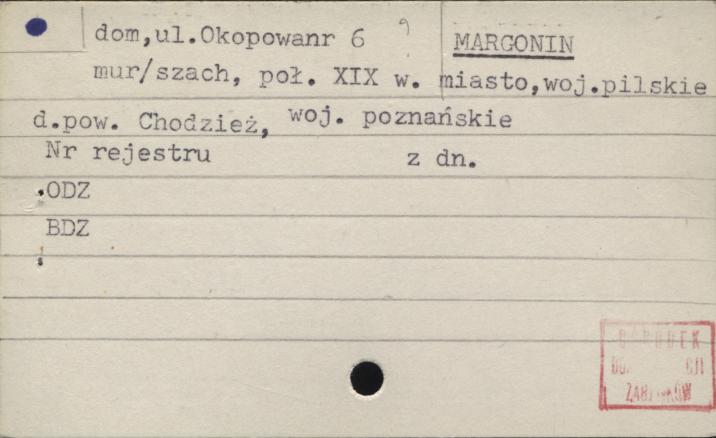 dom,ul.Okopowanr 6 MARGONIN
mur/szach, poł. XIX w. miasto,woj.pilskie
d.pow. Chodzież, woj. poznańskie
Nr rejestru z dn.
.ODZ
BDZ